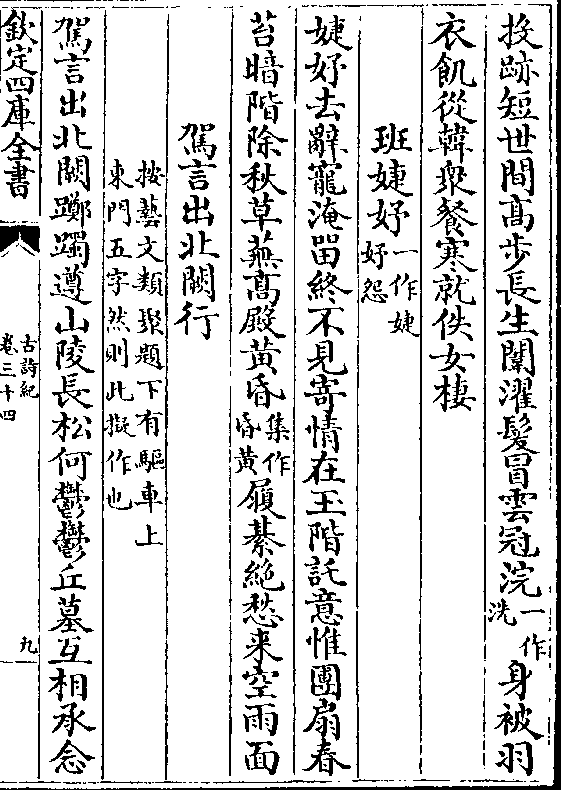 投跡短世間高步長生闈濯髮冒雲冠浣一作洗身被羽
衣飢從韓衆餐寒就佚女棲
班婕妤一作婕妤怨
婕妤去辭寵淹留終不見寄情在玉階託意惟團扇春
苔暗階除秋草蕪髙殿黄昏集作昏黄履綦絶愁来空雨面
駕言出北闕行
按藝文類聚題下有驅車上
東門五字然則此擬作也
駕言出北闕躑躅遵山陵長松何鬱鬱丘墓互相承念
欽定四庫全書
古詩紀
卷三十四
九